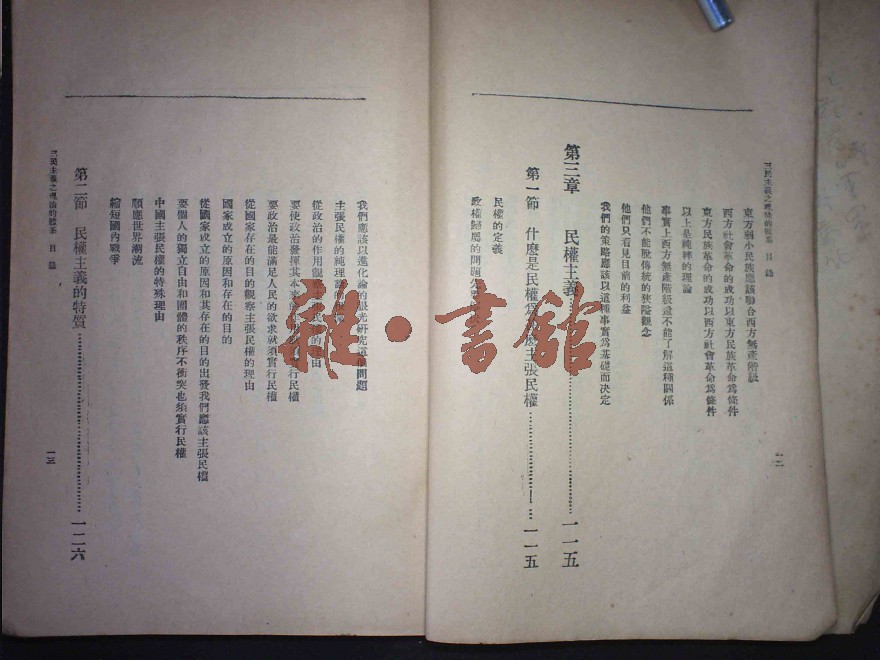 三民主義之理論的體系 目錄
東方弱小民族應該聯合西方無產階級
西方社會革命的成功以東方民族革命爲條件
東方民族革命的成功以西方社會革命爲條件
以上是純粹的理論
事實上西方無產階級還不能了解這種關係
他們不能脫傳統的狹隘觀念
他們只看見目前的利益
我們的策略應該以這種事實爲基礎而決定
第三章 民權主義 一一五
第一節 什麼是民權爲什麼主張民權 一一五
民權的定義
政權歸屬的問題
一二
我們應該以進化論的眼光研究這個問題
主張民權的純理
從政治的作用觀察民權的理由
要使政治發揮其本來的實行民權
要政治最能滿足人民的欲求就須實行民權
從國家存在的目的觀察主張民權的理由
國家成立的原因和存在的目的
從國家成立的原因和其存在的目的出發我們應該主張民權
要個人的獨立自由和團體的秩序不衝突也須實行民權
中國主張民權的特殊理由
順應世界潮流
縮短國內戰爭
第二節 民權主義的特質 一二六
三民主義之理論的體系 目錄
一三
雜·書館